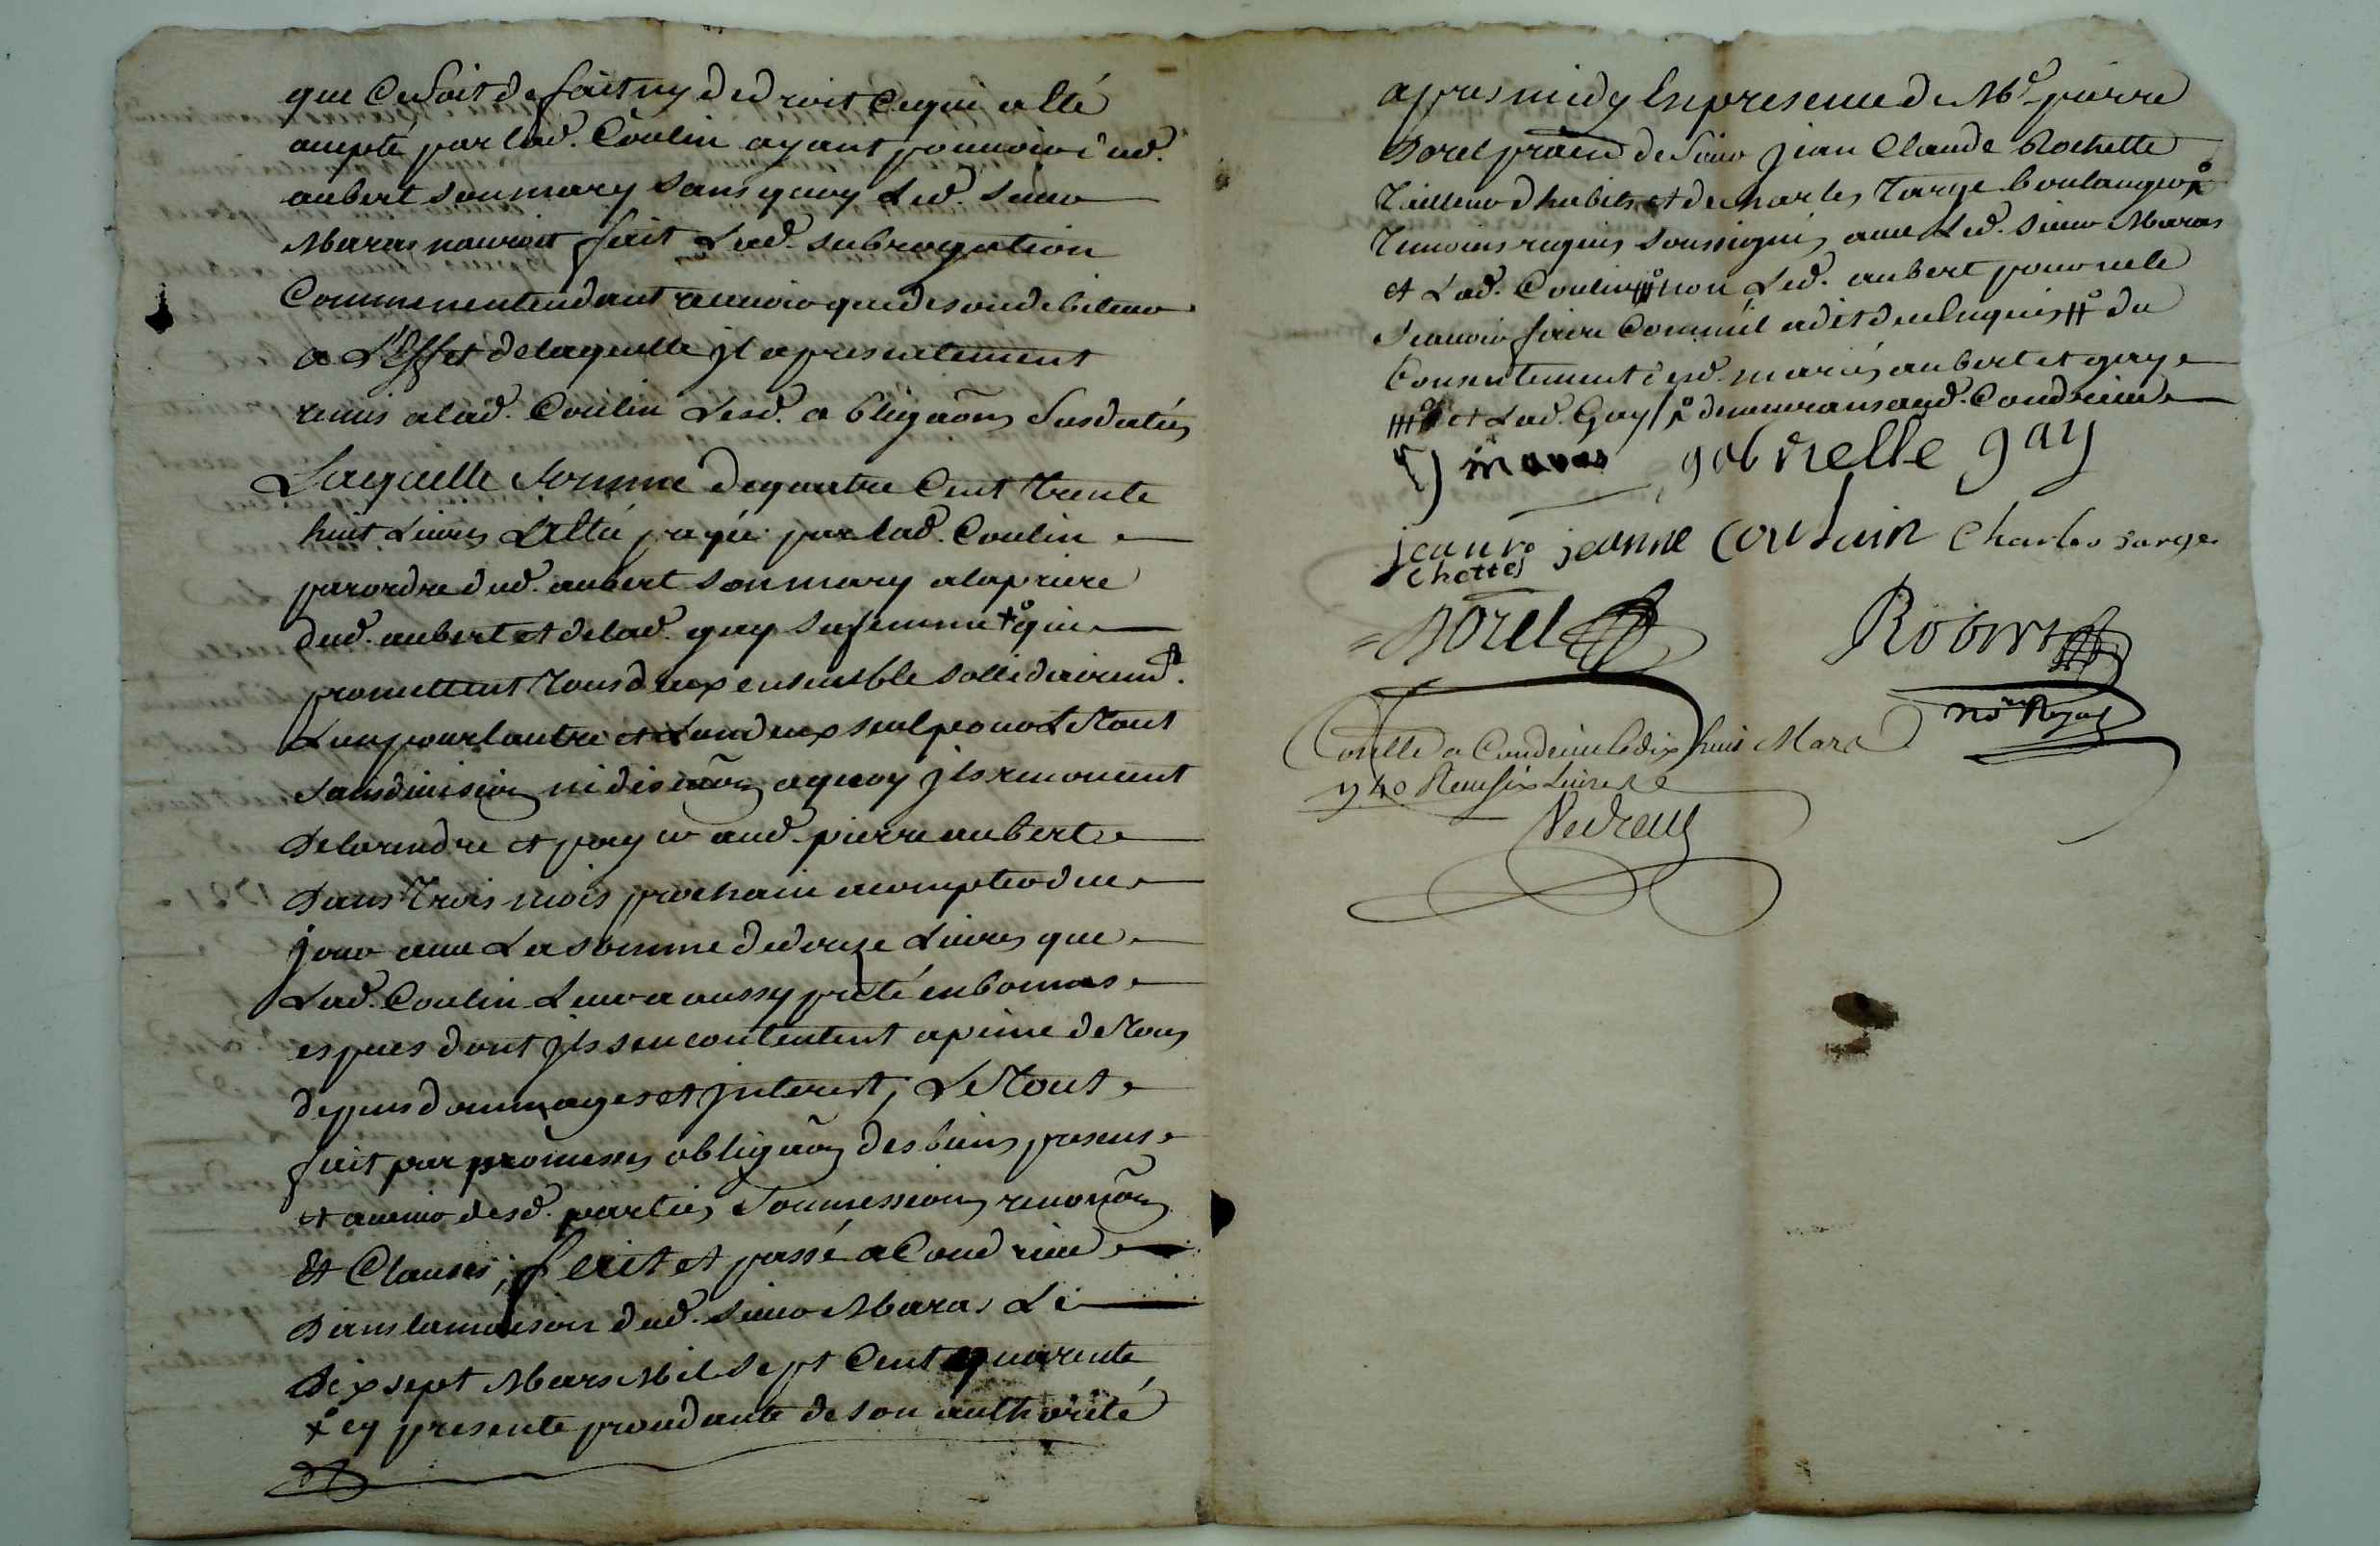 que ce soit de fait ny de droit ce qui a eté
accepté par lad. Coulin ayant pouvoir dud.
aubert son mary sans quoy Led. Sieur
Maras nauroit fait Lad. subrogation
Comme nentendant avoir que de son debiteur
a L'Effet de laquelle jl a presentement
remis a lad. Coulin Lesd. obligaõns susdatées
Laquelle somme de quatre Cent Trente
huit Livres a esté payée par lad. Coulin
par ordre dud. aubert son mary a la priere
dud. aubert et de lad. gay sa femme +° qui
promettent Tous deux ensemble sollidairemt.
Lun pour lautre et Lun deux seul pour Le Tout
sans division ni discuõn a quoy jls renoncent
De la rendre et payer aud. pierre aubert
Dans Trois mois prochain a compter de ce
jour avec La somme de douze Livres que
Lad. Coulin Leur a aussy preté en bonnes
especes dont jls sen contentent a peine de Tous
depens dommages et jnterest, Le Tout
fait par promesses obligaõn des biens presens
et avenir desd. parties Soumissions renonõns
Et Clauses, fait et passé a Condrieu
Dans la maison dud. Sieur Maras Le
Dix sept Mars Mil Sept Cent quarente
+° cy presente procedante de son authorité
apres midy En presence de Me. pierre
Dorel praticn de Sieur jean Claude Rochette
Tailleur dhabits et de charles Targe boulanger
Temoins requis soussignés avec Led. Sieur Maras
et Lad. Coulin #° non Led. aubert pour ne le
Scavoir faire Comme il a dit de ce Enquis #° du
Consentement desd. mariés aubert et gay
#° et Lad. Gay / demeurans aud. Condrieu
maras gabrielle gay
jean ro jeanne coulain Charles targe
chette
Dorel Robert
no.re Royal
Conllé a Condrieu le dix huit Mars
1740 Receu six Livres